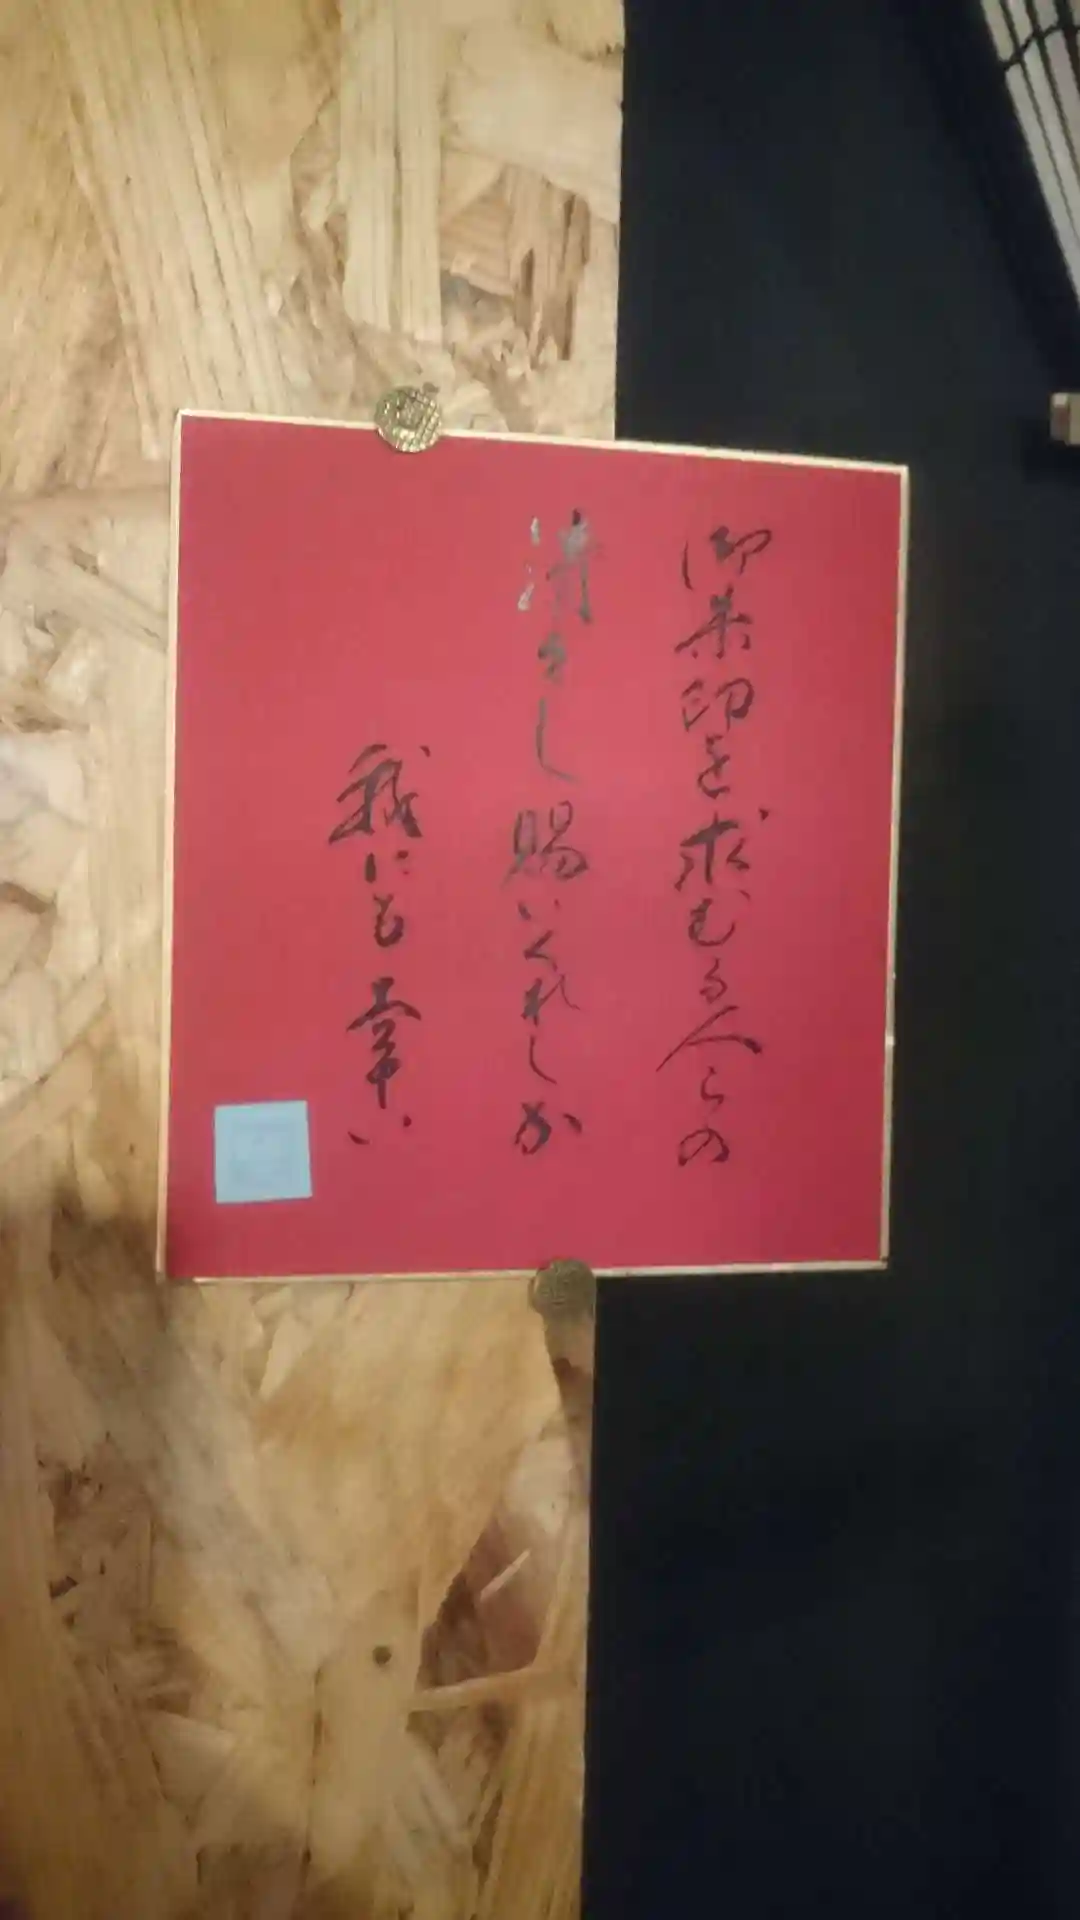 御朱印を求むる人らの
清きし賜いくれしか
我にも幸い